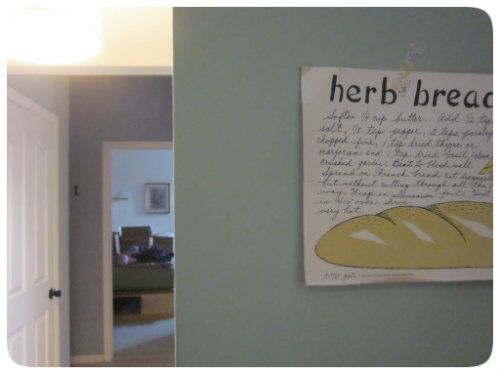 herb bread
Soften ¼ cup butter. Add ½ tsp
salt, ⅛ tsp pepper, 2 tsps parsley
chopped fine, 1 tsp dried thyme or
marjoram and 1 tsp dried basil, 1 clove
crushed garlic. Beat to blend well.
Spread on French bread cut diagonally
but without cutting through all the
way. Wrap in aluminum foil. Heat
in 400° oven. Serve
very hot.